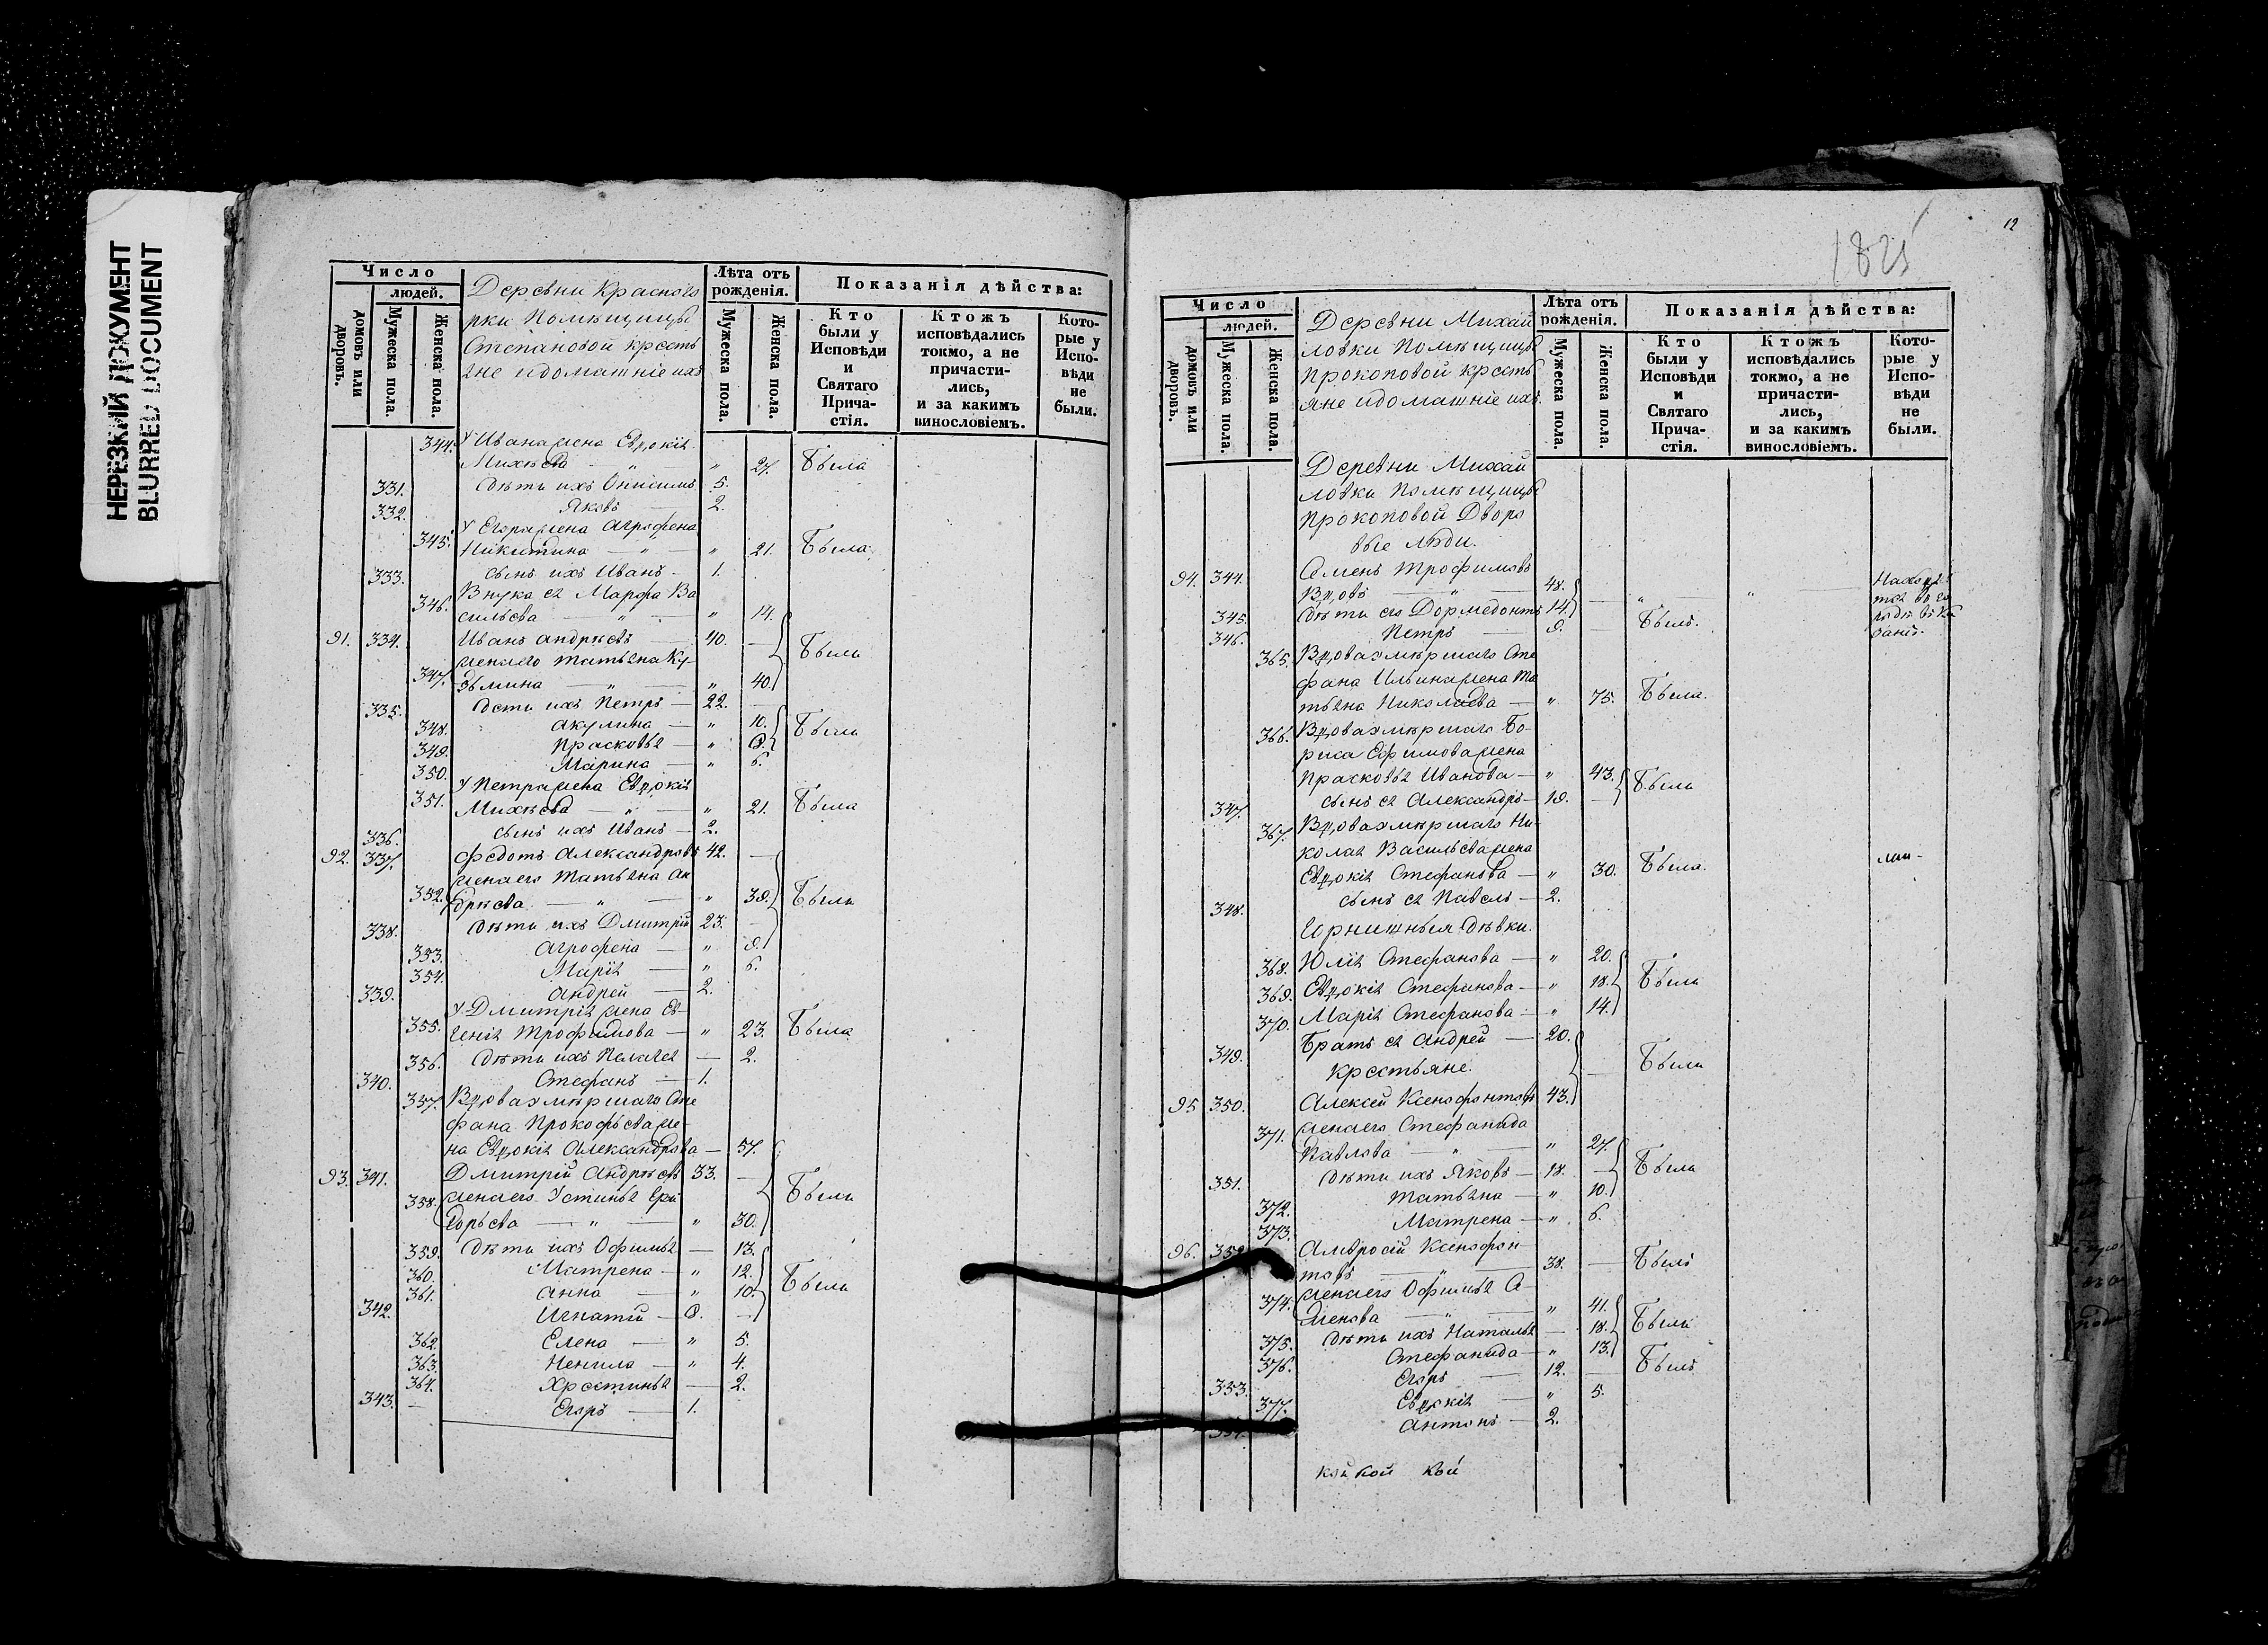 НЕРЕЗКИЙ ДОКУМЕНТ
BLURRED DOCUMENT
Число
людей.
домовъ или дворовъ.
Мужеска пола.
Женска пола.
Деревни Красного
рки Помѣщицы
Степановой кресть
яне и домашніе ихъ
Лѣта отъ
рожденія.
Мужеска пола.
Женска пола.
Показанія дѣйства:
Кто
были у
Исповѣди
и
Святаго
Прича-
стія.
Ктожъ
исповѣдались
токмо, а не
причасти-
лись,
и за какимъ
винословіемъ.
Кото-
рые у
Испо-
вѣди
не
были.
344. У Ивана жена Евдокія
Михѣева — " 27. Была
331. Дѣти ихъ Онисимъ 5.
332. Яковъ — 2.
У Егора жена Агрофена
345. Никитина — " — " 21. Была
333. Сынъ ихъ Иванъ — 1.
346. Внука ея Марфа Ва
сильева — " — " 14.
91. 334. Иванъ Андрѣевъ — 40. — Были
жена его Татьяна Ку-
347. зьмина — " — " 40.
335. Дети ихъ Петръ — 22. —
348. Акулина — " 10. Были
349. Прасковья — " 8.
350. Марина — " 6.
У Петра жена Евдокія
351. Михѣева — " — " 21. Была
336. Сынъ ихъ Иванъ — 2.
92. 337. Федотъ Александровъ 42. —
жена его Татьяна Ан
352. дрѣева — " — " 39. Были
338. Дѣти ихъ Дмитрій 23. —
353. Агрофена — " 9.
354. Марія — " 6.
339. Андрей — 2.
У Дмитрія жена Ев-
355. генія Трофимова — " 23. Была
356. Дѣти ихъ Пелагея — 2.
340. Стефанъ — 1.
357. Вдова умѣршаго Сте
фана Прокофьева же-
на Евдокія Александрова — 57.
93. 341. Дмитрій Андрѣевъ 33. — Были
358. жена его Устинья Гри
горьева — " — " 30.
359. Дѣти ихъ Офимья — 13.
360. Матрена — " 12. Были
361. Анна — " 10.
342. Игнатій — 8. —
362. Елена — " 5.
363. Ненила — " 4.
364. Хрестинья — 2.
343. — Егоръ — 1.
12
1825
Число
людей.
домовъ или дворовъ.
Мужеска пола
Женска пола.
Деревни Михай
ловки Помѣщицы
Прокоповой кресть
яне и домашніе ихъ.
Лѣта отъ
рожденія.
Мужеска пола.
Женска пола.
Показанія дѣйства:
Кто
были у
Исповѣди
и
Святаго
Прича-
стія.
Ктожъ
исповѣдались
токмо, а не
причасти-
лись,
и за какимъ
винословіемъ.
Кото-
рые у
Испо-
вѣди
не
были.
Деревни Михай
ловки Помѣщицы
Прокоповой Дворо
вые люди.
94. 344. Семенъ Трофимовъ
Вдовъ — " — 48. — " "
345. Дѣти его Дормедонтъ 14. Былъ.
346. Петръ — 9. —
365. Вдова умѣршаго Сте
фана Ильина жена Та
тьяна Николаева — " 75. Была.
366. Вдова умѣршаго Бо-
риса Ефимова жена
Прасковья Иванова — " 43. Были
347. Сынъ ея Александръ — 19. —
367. Вдова умѣршаго Ни-
колая Васильева жена
Евдокія Стефанова — " 30. Была.
348. Сынъ ея Павелъ — 2.
Горнишныя дѣвки.
368. Юлія Стефанова — " 20.
369. Евдокія Стефанова — " 18. Были
370. Марія Стефанова — " 14.
349. Братъ ея Андрей — 20.
Крестьяне. — Были
95 350. Алексей Ксенофонтовъ 43.
жена его Стефанида
371. Павлова — " — " 27.
351. Дѣти ихъ Яковъ — 18. — Были
372. Татьяна — " 10.
373. Матрена — " 6.
96. Амвросій Ксенофон-
товъ — " — 38. — Былъ
374. жена его Офимья Се-
менова — " — " 41.
375. Дѣти ихъ Наталья — 18. Были
376. Стефанида — " 13.
353. Егоръ — 12. — Былъ
377. Евдокія — " 5.
Антонъ — 2.